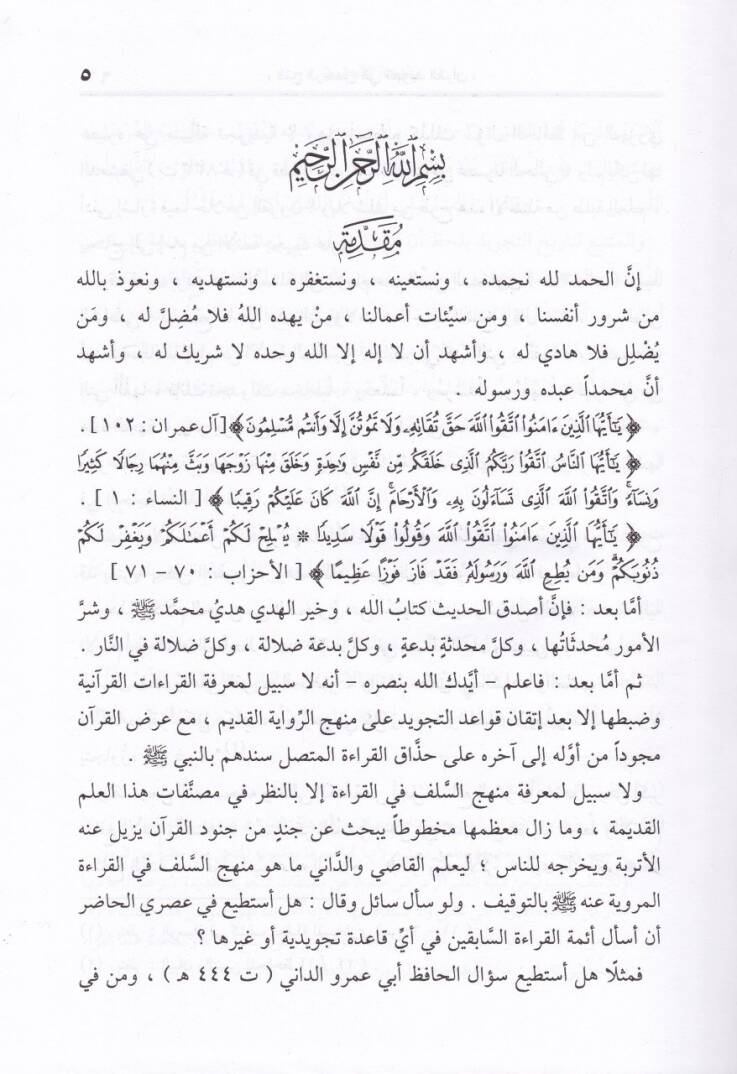 ٥
بسم الله الرحمن الرحيم
مُقَدِّمَة
إنَّ الحمد لله نحمده ، ونستعينه ، ونستغفره ، ونستهديه ، ونعوذ بالله
من شرور أنفسنا ، ومن سيِّئات أعمالنا ، منْ يهده اللهُ فلا مُضِلَّ له ، ومَن
يُضْلِل فلا هادي له ، وأشهد أن لا إله إلا الله وحده لا شريك له ، وأشهد
أنَّ محمداً عبده ورسوله .
﴿ يَـٰٓأَيُّهَا ٱلَّذِينَ ءَامَنُوا۟ ٱتَّقُوا۟ ٱللَّهَ حَقَّ تُقَاتِهِۦ وَلَا تَمُوتُنَّ إِلَّا وَأَنتُم مُّسْلِمُونَ ﴾ [ آل عمران : ١٠٢ ] .
﴿ يَـٰٓأَيُّهَا ٱلنَّاسُ ٱتَّقُوا۟ رَبَّكُمُ ٱلَّذِى خَلَقَكُم مِّن نَّفْسٍ وَٰحِدَةٍ وَخَلَقَ مِنْهَا زَوْجَهَا وَبَثَّ مِنْهُمَا رِجَالًا كَثِيرًا
وَنِسَآءً ۚ وَٱتَّقُوا۟ ٱللَّهَ ٱلَّذِى تَسَآءَلُونَ بِهِۦ وَٱلْأَرْحَامَ ۚ إِنَّ ٱللَّهَ كَانَ عَلَيْكُمْ رَقِيبًا ﴾ [ النساء : ١ ] .
﴿ يَـٰٓأَيُّهَا ٱلَّذِينَ ءَامَنُوا۟ ٱتَّقُوا۟ ٱللَّهَ وَقُولُوا۟ قَوْلًا سَدِيدًا * يُصْلِحْ لَكُمْ أَعْمَـٰلَكُمْ وَيَغْفِرْ لَكُمْ
ذُنُوبَكُمْ ۗ وَمَن يُطِعِ ٱللَّهَ وَرَسُولَهُۥ فَقَدْ فَازَ فَوْزًا عَظِيمًا ﴾ [ الأحزاب : ٧٠ – ٧١ ]
أمَّا بعد : فإنَّ أصدق الحديث كتابُ الله ، وخير الهدي هديُ محمَّد ﷺ ، وشرَّ
الأمور مُحدثَاتُها ، وكلَّ محدثةٍ بدعة ، وكلَّ بدعة ضلالة ، وكلَّ ضلالة في النَّار .
ثم أمَّا بعد : فاعلم – أيَّدك الله بنصره – أنه لا سبيل لمعرفة القراءات القرآنية
وضبطها إلا بعد إتقان قواعد التجويد على منهج الرِّواية القديم ، مع عرض القرآن
مجوداً من أوَّله إلى آخره على حذَّاق القراءة المتصل سندهم بالنبي ﷺ .
ولا سبيل لمعرفة منهج السَّلف في القراءة إلا بالنظر في مصنَّفات هذا العلم
القديمة ، وما زال معظمها مخطوطاً يبحث عن جندٍ من جنود القرآن يزيل عنه
الأتربة ويخرجه للناس ؛ ليعلم القاصي والدَّاني ما هو منهج السَّلف في القراءة
المروية عنه ﷺ بالتوقيف . ولو سأل سائل وقال : هل أستطيع في عصري الحاضر
أن أسأل أئمة القراءة السابقين في أيِّ قاعدة تجويدية أو غيرها ؟
فمثلًا هل أستطيع سؤال الحافظ أبي عمرو الداني ( ت ٤٤٤ هـ ) ، ومن في